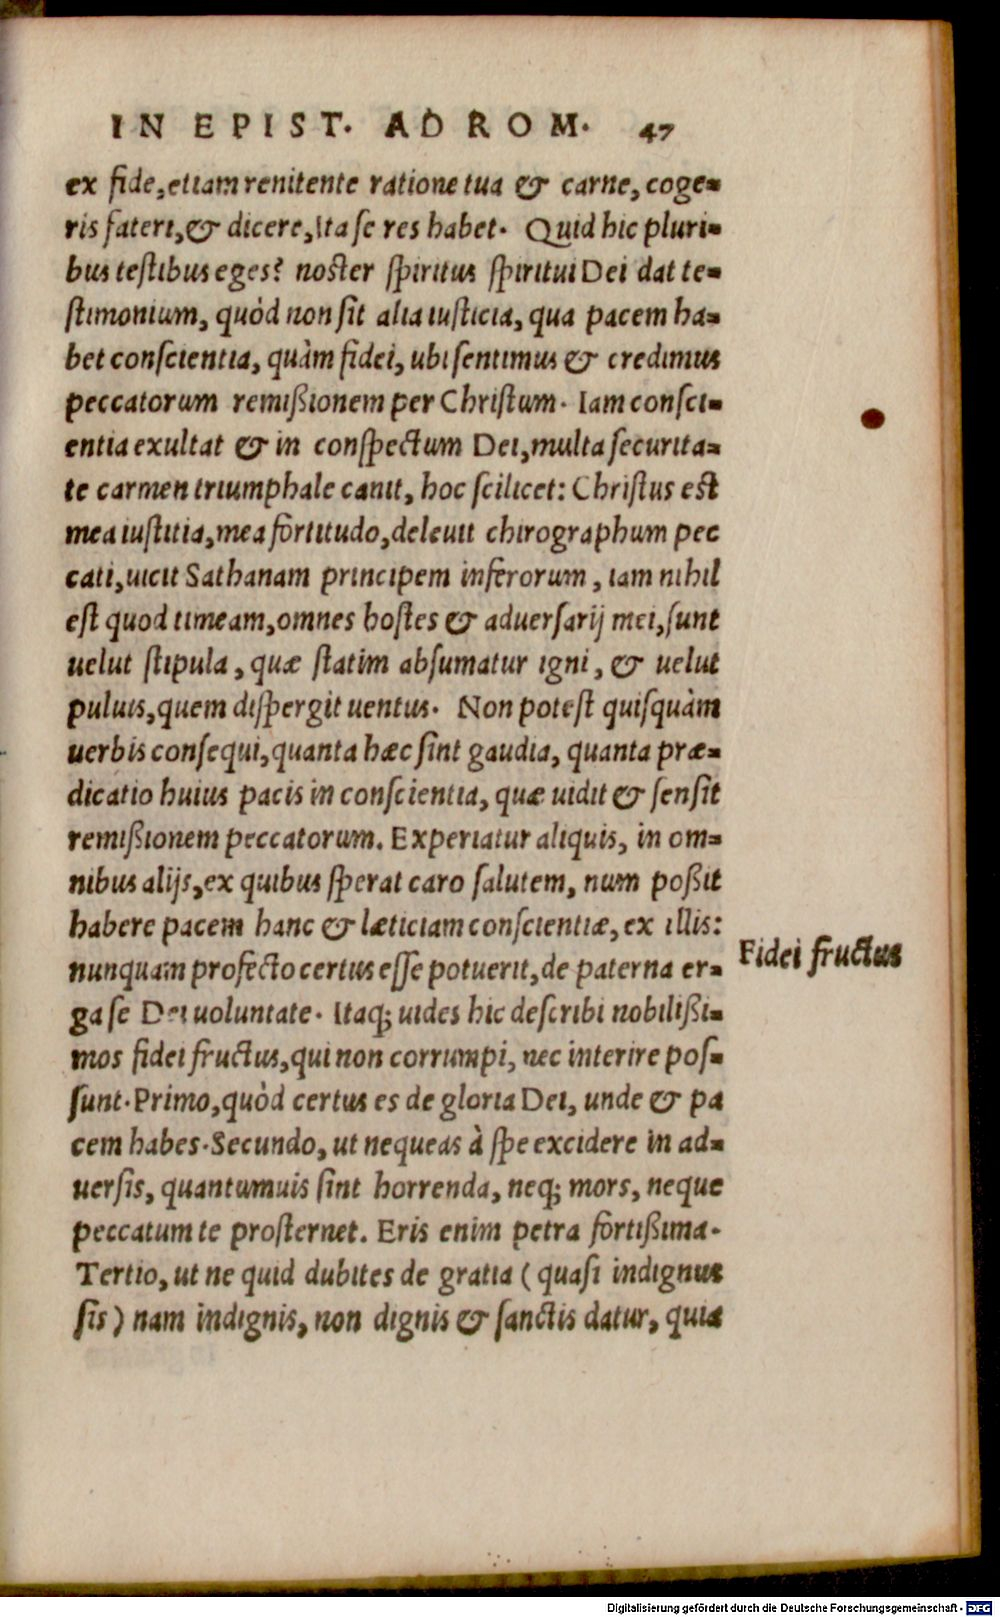 IN EPIST. AD ROM. 47
ex fide, etiam renitente ratione tua & carne, coge-
ris fateri, & dicere, Ita se res habet. Quid hic pluri-
bus testibus eges? noster spiritus spiritui Dei dat te-
stimonium, quòd non sit alia iusticia, qua pacem ha-
bet conscientia, quàm fidei, ubi sentimus & credimus
peccatorum remißionem per Christum. Iam consci-
entia exultat & in conspectum Dei, multa securita-
te carmen triumphale canit, hoc scilicet: Christus est
mea iustitia, mea fortitudo, deleuit chirographum pec
cati, uicit Sathanam principem inferorum, iam nihil
est quod timeam, omnes hostes & aduersarij mei, sunt
uelut stipula, quæ statim absumatur igni, & uelut
puluis, quem dispergit uentus. Non potest quisquàm
uerbis consequi, quanta hæc sint gaudia, quanta præ-
dicatio huius pacis in conscientia, quæ uidit & sensit
remißionem peccatorum. Experiatur aliquis, in om-
nibus alijs, ex quibus sperat caro salutem, num poßit
habere pacem hanc & læticiam conscientiæ, ex illis:
nunquam profecto certus esse potuerit, de paterna er-
Fidei fructus
ga se Dei uoluntate. Itaq; uides hic describi nobilißi-
mos fidei fructus, qui non corrumpi, nec interire pos-
sunt. Primo, quòd certus es de gloria Dei, unde & pa
cem habes. Secundo, ut nequeas à spe excidere in ad-
uersis, quantumuis sint horrenda, neq; mors, neque
peccatum te prosternet. Eris enim petra fortißima.
Tertio, ut ne quid dubites de gratia (quasi indignus
sis) nam indignis, non dignis & sanctis datur, quia
Digitalisierung gefördert durch die Deutsche Forschungsgemeinschaft - DFG